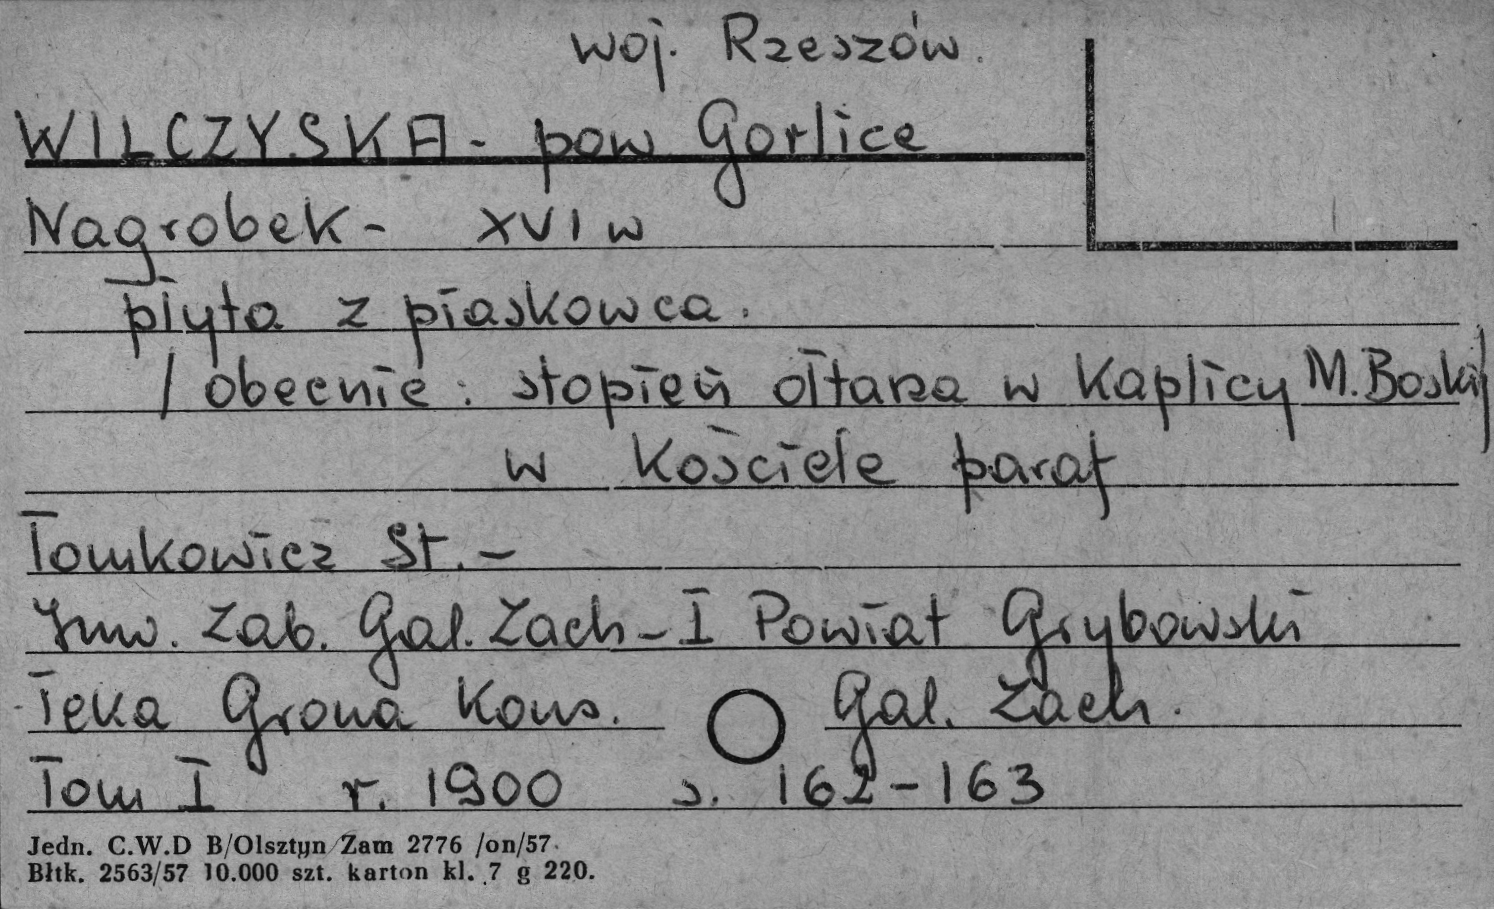 woj. Rzeszów.
WILCZYSKA - pow Gorlice
Nagrobek - XVI w
płyta z piaskowca.
/ obecnie: stopień ołtarza w Kaplicy M. Boskiej
w Kościele paraf
Tomkowicz St. -
Inw. Zab. Gal. Zach - I Powiat Grybowski
Teka Grona Kons. Gal. Zach.
Tom I r. 1900 s. 162-163
Jedn. C.W.D B/Olsztyn Zam 2776 /on/57.
Błtk. 2563/57 10.000 szt. karton kl. 7 g 220.